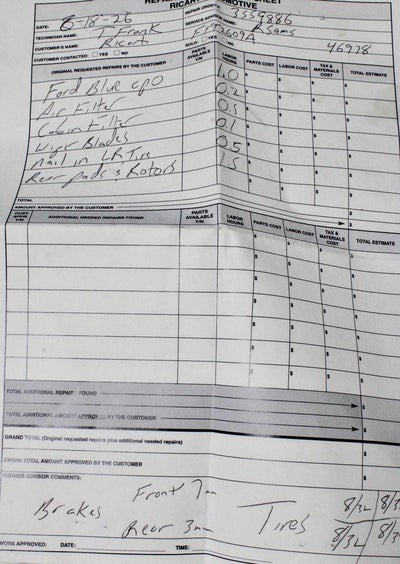 REPAIR ORDER #: 3559886
DATE: 6-18-26
SERVICE ADVISOR NAME: Adams
TECHNICIAN NAME: T Frank
SOLD: YES NO
46978
CUSTOMER'S NAME: Ricart
CUSTOMER CONTACTED: YES NO
ORIGINAL REQUESTED REPAIRS BY THE CUSTOMER PARTS AVAILABLE Y/N LABOR HOURS PARTS COST LABOR COST TAX & MATERIALS COST TOTAL ESTIMATE
Ford Blue cpo 1.0
Air Filter 0.2
Cabin Filter
Wiper Blades
Nail in LR Tire 0.5
Rear pads & Rotors 1.5
TOTAL
AMOUNT APPROVED BY THE CUSTOMER
CUST. APPR. Y/N ADDITIONAL NEEDED REPAIRS FOUND PARTS AVAILABLE Y/N LABOR HOURS PARTS COST LABOR COST TAX & MATERIALS COST TOTAL ESTIMATE
TOTAL ADDITIONAL REPAIR FOUND
TOTAL ADDITIONAL AMOUNT APPROVED BY THE CUSTOMER
GRAND TOTAL (Original requested repairs plus additional needed repairs)
GRAND TOTAL AMOUNT APPROVED BY THE CUSTOMER
SERVICE ADVISOR COMMENTS:
Brakes Front 7mm
Rear 3mm
Tires 8/32 8/3
8/32 8/3
WORK APPROVED: DATE: TIME: